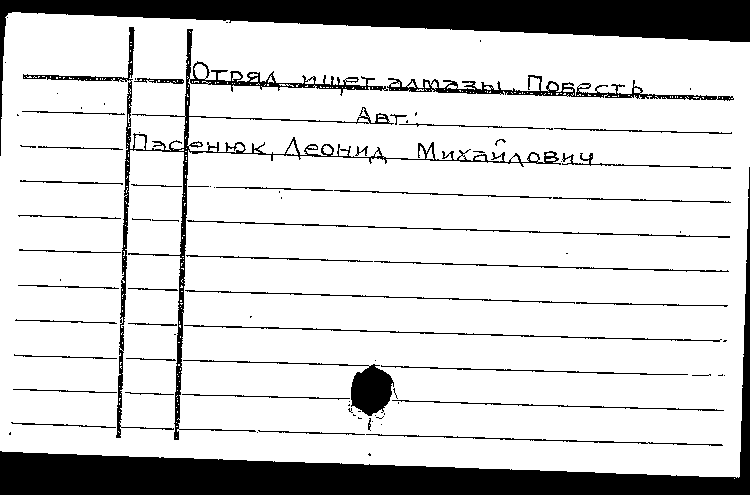 Отряд ищет алмазы. Повесть
Авт.:
Пасенюк, Леонид Михайлович